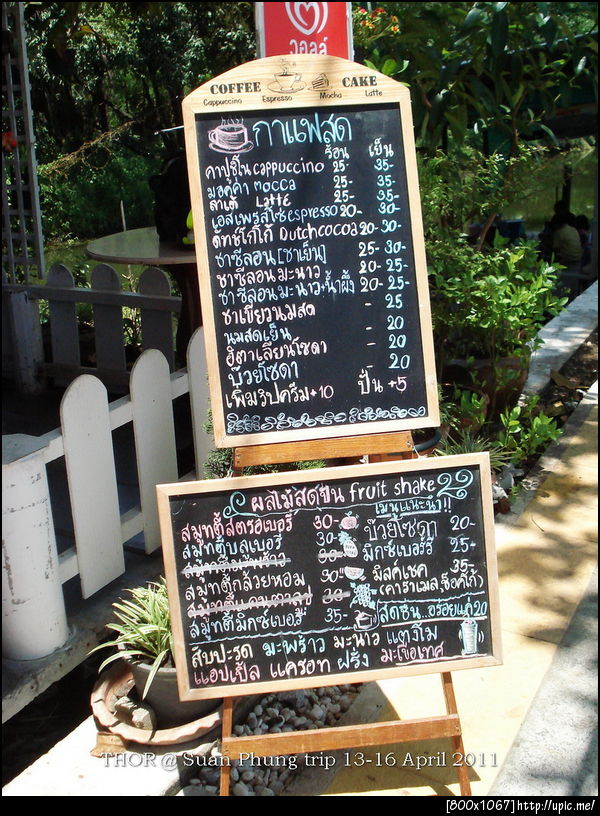 วอลล์
COFFEE CAKE
Cappuccino Espresso Mocha Latte
กาแฟสด
ร้อน เย็น
คาปูชิโน cappuccino 25- 35-
มอคค่า mocca 25- 35-
ลาเต้ Latte 25- 35-
เอสเพรสโซ่ espresso 20- 30-
ดัทช์โกโก้ Dutchcocoa 20- 30-
ชาซีลอน [ชาเย็น] 25- 30-
ชาซีลอนมะนาว 20- 25-
ชาซีลอนมะนาว+น้ำผึ้ง 20- 25-
ชาเขียวนมสด - 25
นมสดเย็น - 20
อิตาเลี่ยนโซดา - 20
บ๊วยโซดา 20
เพิ่มวิปครีม+10 ปั่น +5
ผลไม้สดปั่น fruit shake
เมนูแนะนำ!!
สมูทตี้สตรอเบอรี่ 30- บ๊วยโซดา 20-
สมูทตี้บลูเบอรี่ 30- มิกซ์เบอร์รี่ 25-
30-
สมูทตี้กล้วยหอม 30- มิลค์เชค 35-
(คาราเมล,ช็อคโก้)
30-
สมูทตี้มิกซ์เบอรี่ 35- สดชื่น..อร่อยแค่20
สับปะรด มะพร้าว มะนาว แตงโม
แอปเปิ้ล แครอท ฝรั่ง มะเขือเทศ
THOR @ Suan Phung trip 13-16 April 2011
[800x1067]http://upic.me/